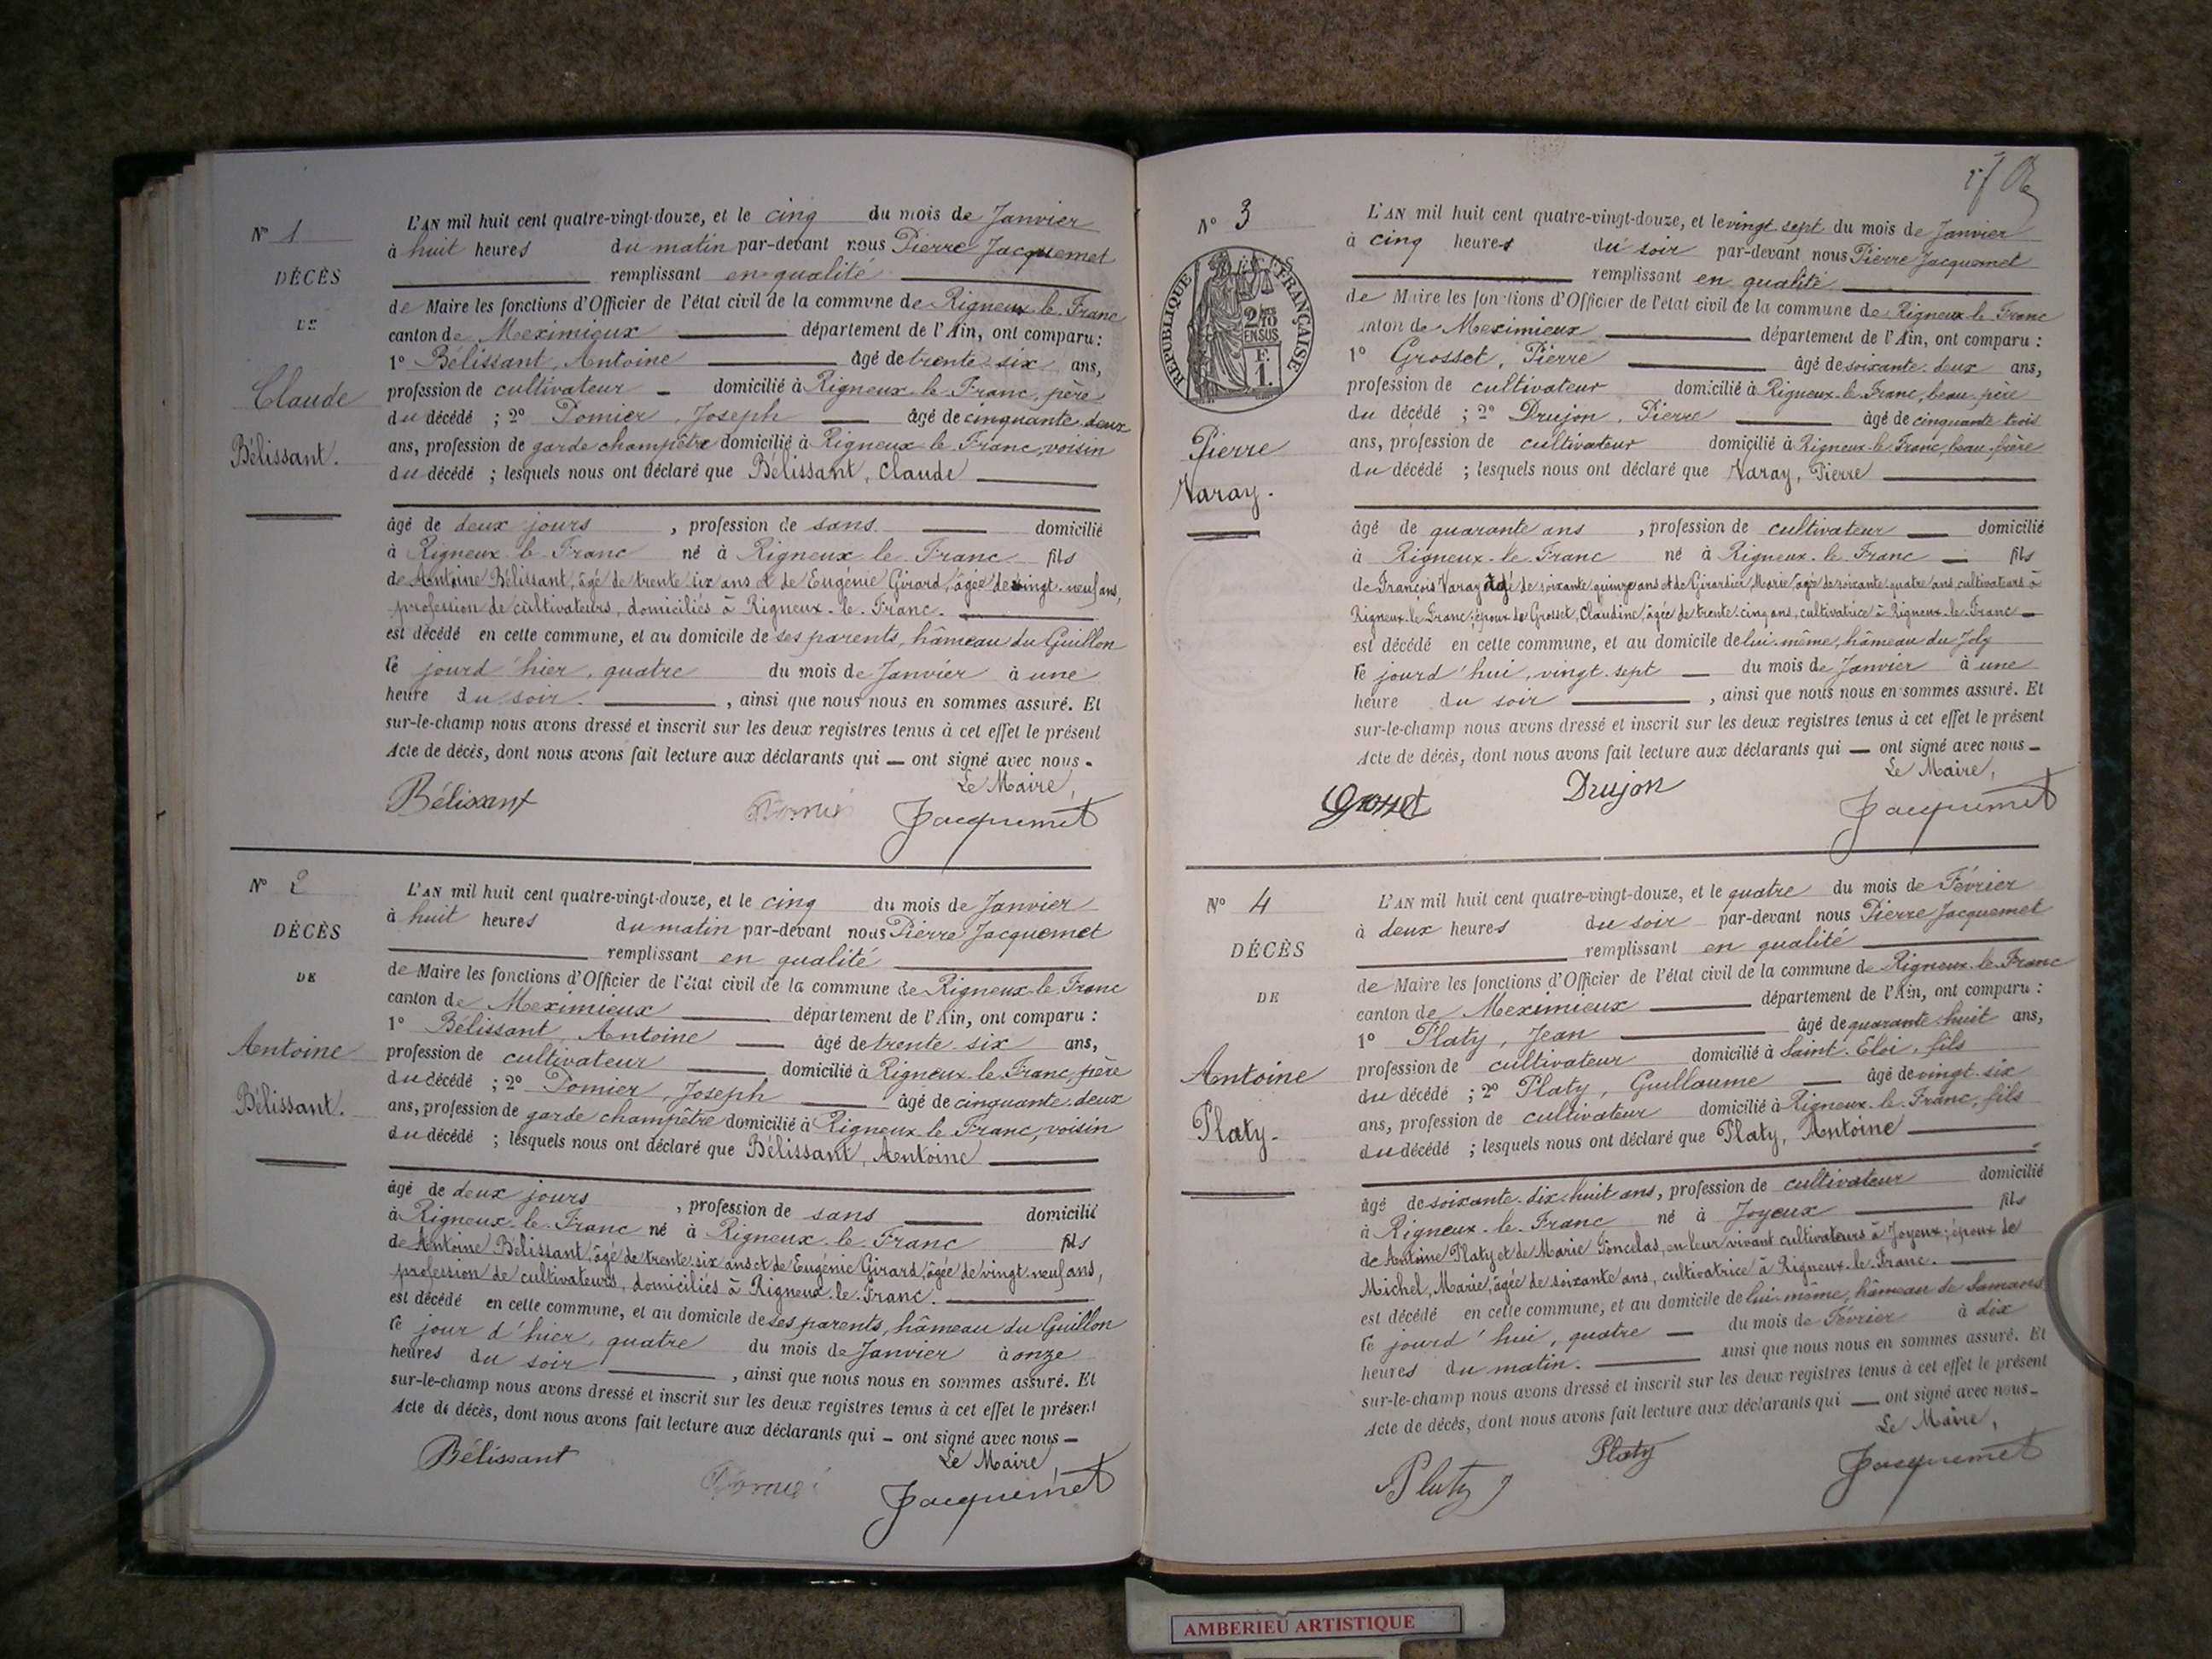 N° 1
DÉCÈS
DE
Claude
Bélissant.
L'AN mil huit cent quatre-vingt-douze, et le cinq du mois de Janvier
à huit heures du matin par-devant nous Pierre Jacquemet
remplissant en qualité
de Maire les fonctions d'Officier de l'état civil de la commune de Rigneux-le-Franc
canton de Meximieux département de l'Ain, ont comparu :
1° Bélissant, Antoine âgé de trente-six ans,
profession de cultivateur domicilié à Rigneux-le-Franc, père
du décédé ; 2° Pomier, Joseph âgé de cinquante-deux
ans, profession de garde champêtre domicilié à Rigneux le Franc, voisin
du décédé ; lesquels nous ont déclaré que Bélissant, Claude
âgé de deux jours , profession de sans domicilié
à Rigneux-le-Franc né à Rigneux-le-Franc fils
de Antoine Bélissant, âgé de trente six ans et de Eugénie Girard, âgée de vingt-neuf ans,
profession de cultivateurs, domiciliés à Rigneux-le-Franc.
est décédé en cette commune, et au domicile de ses parents, hâmeau du Guillon
le jourd'hier, quatre du mois de Janvier à une
heure du soir. , ainsi que nous nous en sommes assuré. Et
sur-le-champ nous avons dressé et inscrit sur les deux registres tenus à cet effet le présent
Acte de décès, dont nous avons fait lecture aux déclarants qui — ont signé avec nous -
Le Maire,
Bélissant Jacquemet
N° 2
DÉCÈS
DE
Antoine
Bélissant.
L'AN mil huit cent quatre-vingt-douze, et le cinq du mois de Janvier
à huit heures du matin par-devant nous Pierre Jacquemet
remplissant en qualité
de Maire les fonctions d'Officier de l'état civil de la commune de Rigneux-le-Franc
canton de Meximieux département de l'Ain, ont comparu :
1° Bélissant, Antoine âgé de trente-six ans,
profession de cultivateur domicilié à Rigneux-le-Franc, père
du décédé ; 2° Pomier, Joseph âgé de cinquante-deux
ans, profession de garde champêtre domicilié à Rigneux-le-Franc, voisin
du décédé ; lesquels nous ont déclaré que Bélissant, Antoine
âgé de deux jours , profession de sans domicilié
à Rigneux-le-Franc né à Rigneux-le-Franc fils
de Antoine Bélissant, âgé de trente-six ans et de Eugénie Girard, âgée de vingt-neuf ans,
profession de cultivateurs, domiciliés à Rigneux-le-Franc.
est décédé en cette commune, et au domicile de ses parents, hâmeau du Guillon
le jour d'hier, quatre du mois de Janvier à onze
heures du soir , ainsi que nous nous en sommes assuré. Et
sur-le-champ nous avons dressé et inscrit sur les deux registres tenus à cet effet le présent
Acte de décès, dont nous avons fait lecture aux déclarants qui — ont signé avec nous —
Le Maire,
Bélissant Jacquemet
N° 3
RÉPUBLIQUE FRANÇAISE
2/10 EN SUS
F. 1.
Pierre
Varay.
L'AN mil huit cent quatre-vingt-douze, et le vingt sept du mois de Janvier
à cinq heures du soir par-devant nous Pierre Jacquemet
remplissant en qualité
de Maire les fonctions d'Officier de l'état civil de la commune de Rigneux-le-Franc
canton de Meximieux département de l'Ain, ont comparu :
1° Grosset, Pierre âgé de soixante-deux ans,
profession de cultivateur domicilié à Rigneux-le-Franc, beau-père
du décédé ; 2° Drujon, Pierre âgé de cinquante trois
ans, profession de cultivateur domicilié à Rigneux-le-Franc, beau-frère
du décédé ; lesquels nous ont déclaré que Varay, Pierre
âgé de quarante ans , profession de cultivateur domicilié
à Rigneux-le-Franc né à Rigneux-le-Franc fils
de François Varay âgé de soixante quinze ans et de Girardier, Marie, âgée de soixante-quatre ans, cultivateurs à
Rigneux-le-Franc ; époux de Grosset, Claudine, âgée de trente-cinq ans, cultivatrice à Rigneux-le-Franc —
est décédé en cette commune, et au domicile de lui-même, hâmeau du Joly
le jourd'hui, vingt-sept du mois de Janvier à une
heure du soir , ainsi que nous nous en sommes assuré. Et
sur-le-champ nous avons dressé et inscrit sur les deux registres tenus à cet effet le présent
Acte de décès, dont nous avons fait lecture aux déclarants qui — ont signé avec nous —
Le Maire,
Grosset Drujon Jacquemet
N° 4
DÉCÈS
DE
Antoine
Platy.
L'AN mil huit cent quatre-vingt-douze, et le quatre du mois de Février
à deux heures du soir par-devant nous Pierre Jacquemet
remplissant en qualité
de Maire les fonctions d'Officier de l'état civil de la commune de Rigneux-le-Franc
canton de Meximieux département de l'Ain, ont comparu :
1° Platy, Jean âgé de quarante-huit ans,
profession de cultivateur domicilié à Saint-Eloi, fils
du décédé ; 2° Platy, Guillaume âgé de vingt-six
ans, profession de cultivateur domicilié à Rigneux-le-Franc, fils
du décédé ; lesquels nous ont déclaré que Platy, Antoine
âgé de soixante-dix-huit ans, profession de cultivateur domicilié
à Rigneux-le-Franc né à Joyeux fils
de Antoine Platy et de Marie Goncelas, en leur vivant cultivateurs à Joyeux ; époux de
Michel, Marie, âgée de soixante ans, cultivatrice à Rigneux-le-Franc.
est décédé en cette commune, et au domicile de lui-même, hâmeau de Samans
le jourd'hui, quatre du mois de Février à dix
heures du matin. ainsi que nous nous en sommes assuré. Et
sur-le-champ nous avons dressé et inscrit sur les deux registres tenus à cet effet le présent
Acte de décès, dont nous avons fait lecture aux déclarants qui — ont signé avec nous —
Le Maire,
Platy J Platy Jacquemet
AMBERIEU ARTISTIQUE